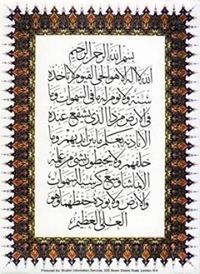 بسم الله الرحمن الرحيم
الله لا اله الا هو الحي القيوم لا تأخذه
سنة ولا نوم له ما في السموات وما
في الارض من ذا الذي يشفع عنده
الا باذنه يعلم ما بين ايديهم وما
خلفهم ولا يحيطون بشيء من علمه
الا بما شاء وسع كرسيه السموات
والارض ولا يؤده حفظهما وهو
العلي العظيم
Produced by: Muslim Information Services, 233 Seven Sisters Road, London N4